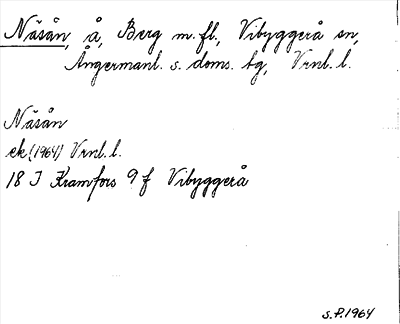 Näsån, å, Berg m.fl., Vibyggerå sn,
Ångermanl. s. doms. tg, Vrnl. l.
Näsån
ek (1964) Vrnl. l.
18 I Kramfors 9 f Vibyggerå
S.P. 1964